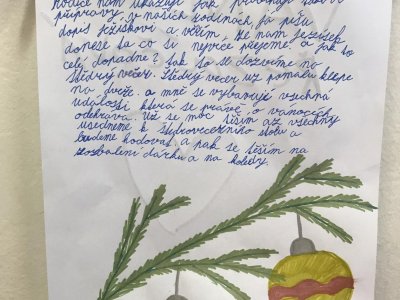 Rodiče nám ukazují jak
přípravy, v našich rodinách, já píšu
dopis Ježíškovi a věřím, že nám Ježíšek
donese ta co si nejvíce přejme. a jak to
celý dopadne? Jak to se dozvíme na
štědrý večer. Štědrý večer už pomalu klepe
na dveře a mně se vybavují všechna
události která se právě o vánocích
odehrává. Už se moc těším až všechny
usedneme k štědrovečerního stolu a
budeme hodovat a pak se těším na
rozbalení dárku a na koledy.